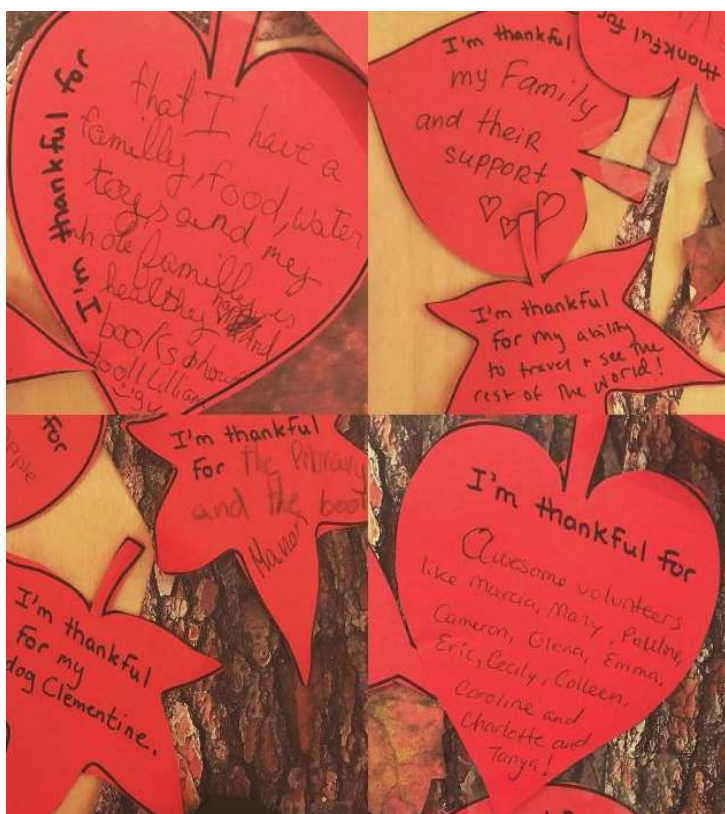 I'm thankful for
that I have a
familly, food, water
toys and my
whole familly is
healthy and
books
I'm thankful
my Family
and their
support
thankful for
I'm thankful
for my ability
to travel + see the
rest of the world!
for
apple
I'm thankful
for the library
and the book
I'm thankful
for my
dog Clementine.
I'm thankful for
Awesome volunteers
like Marcia, Mary, Pauline,
Cameron, Olena, Emma,
Eric, Cecily, Colleen,
Caroline and
Charlotte and
Tanya!